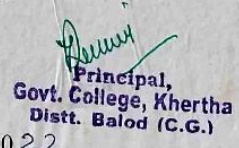 Principal,
Govt. College, Khertha
Distt. Balod (C.G.)
022